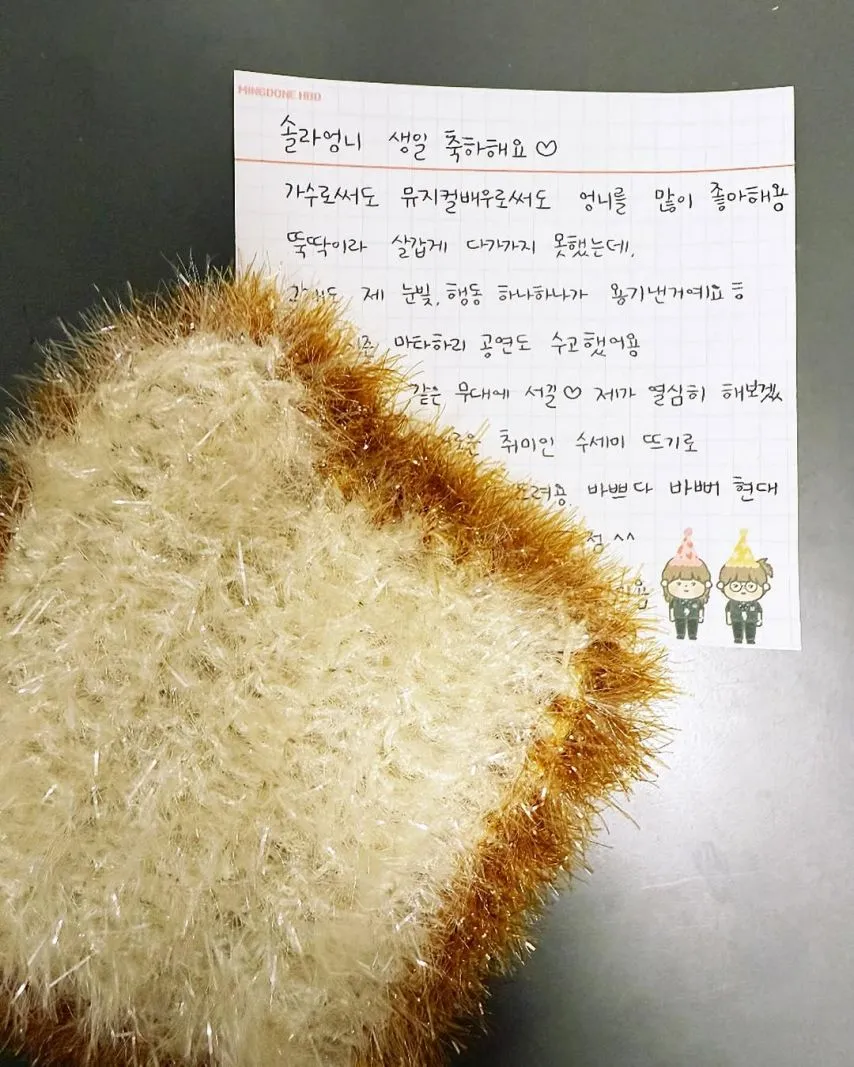 MINGDONE HBD
솔라엉니 생일 축하해요♡
가수로써도 뮤지컬배우로써도 엉니를 많이 좋아해용
뚝딱이라 살갑게 다가가지 못했는데,
제 눈빛, 행동 하나하나가 용기낸거예요ㅎ
마타하리 공연도 수고했어용
같은 무대에 서길♡ 제가 열심히 해보겠
취미인 수세미 뜨기로
드려용. 바쁘다 바뻐 현대
^^